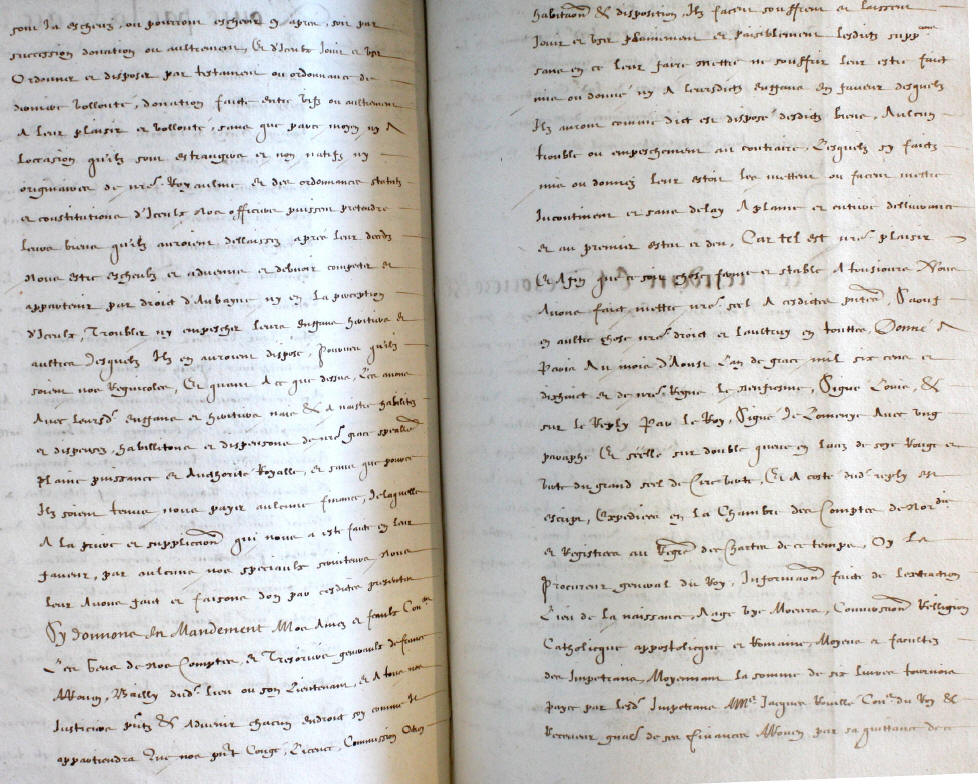 sont Ja escheuz, ou pourront escheoir cy apres, soit par
succession donation ou aultrement, Et d'Iceulx Jouir et user
Ordonner et disposer par testament ou ordonnance de
derniere vollonté, donation faicte entre vifz ou aultrement
A leur plaisir et vollonté, sans que par ce moyen ny A
Loccasion qu'ilz sont estrangiers et non natifz ny
originaires de nre Royaulme, et des ordonnances statutz
et constitutions d'Iceluy Nos officiers puissent pretendre
leurs biens qu'ilz auroient dellaissez apres leur decedz
Nous estre escheuz et advenuz et debvoir competer et
appartenir par droict d'Aubayne ny en La perception
d'Iceulx, Troubler ny empescher leurs enffans heritiers et
aultres desquelz Ilz en auroient disposé, Pourveu qu'ilz
soient nos Regnicoles, Et quant A ce que dessus, Les avons
Avec leursd. enffans et heritiers naiz & A naistre habilitez
et dispensez, habillitons et dispensons de nre grace speciale
plaine puissance et Authorité Royalle, et sans que pource
Ilz soient tenuz nous payer aulcune finance, de laquelle
A la priere et supplication qui nous a esté faicte en leur
faveur, par aulcuns nos speciaulx serviteurs Nous
leur Avons faict et faisons don par cesdictes presentes
Sy donnons En Mandement A Nos Amez et feaulx Coners
Les Gens de Nos Comptes, et Tresoriers generaulx de france
A Rouen, Bailly dud. lieu ou son Lieutenant, et A tous nos
Justiciers pntz & Advenir chacun endroict soy comme Il
appartiendra Que nos pnt Congé, Licence, Commission Octroy
habitaon & disposition, Ilz facent souffrent et laissent
Jouir et user plainement et paisiblement lesdits supp
sans en ce leur faire mettre ne souffrir leur estre faict
mis ou donné ny A leursdits enffans En faveur desquelz
Ilz auront comme dict est disposé desdits biens, Aulcun
trouble ou empeschement au contraire, Lesquelz sy faictz
mis ou donnez leur estoit les mettent ou facent mettre
Incontinent et sans delay A plaine et entiere dellivrance
et au premier estat et deu, Car tel est nre plaisir
Et Affin que ce soit chose ferme et stable A tousiours Nous
Avons faict mettre nre scel A cesdictes pntes, Saouf
en aultre chose nre droict et Laultruy en touttes, Donné A
Paris Au mois d'Aoust Lan de grace mil six cens et
dixhuict et de nre Regne le neufiesme, Signé Louis, &
sur le Reply Par Le Roy, Signé De Lomenye Avec ung
paraphe Et scellé sur double queue en Laaz de soye Rouge et
verte du grand scel de Cire verte, Et A costé dud. reply est
escript, Expediees en La Chambre des Comptes de Nordie
et Registrees au Regre des Chartes de ce temps, Oy Le
Procureur general du Roy, Informaon faicte de Lextraction
Lieu de la naissance, Aage vye Moeurs, Conversation Relligion
Catholicque appostolicque et Romaine, Moyens et facultez
des Impetrans, Moyennant la somme de six livres tournois
payee par lesd. Impetrans A Me Jacques Rouillé Coner du Roy &
Receveur gnal de ses finances A Rouen par sa quittance de ce